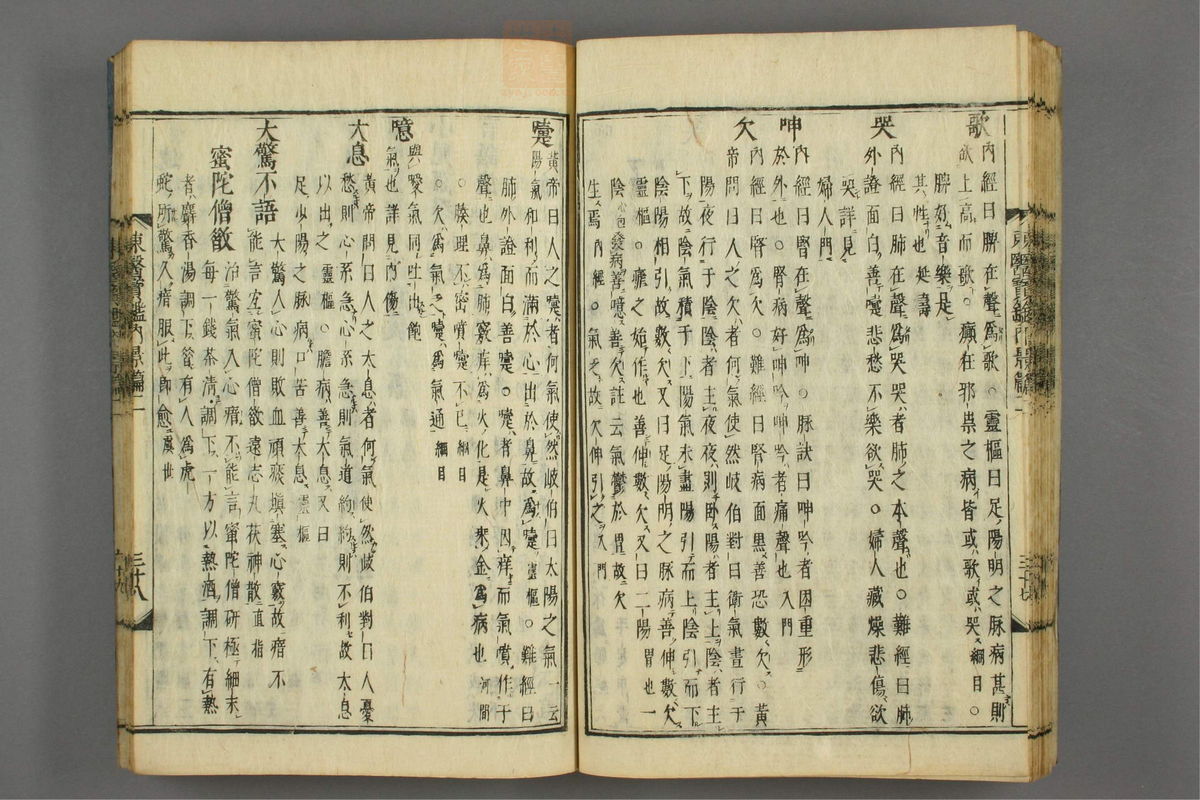 歌
內經曰脾在聲爲歌○靈樞曰足陽明之脉病甚則
欲上高而歌○癲狂邪祟之病皆或歌或哭綱目○
脾好音樂是
其性也延壽
哭
內經曰肺在聲爲哭哭者肺之本聲也○難經曰肺
外證面白善嚔悲愁不樂欲哭○婦人藏燥悲傷欲
哭詳見
婦人門
呻
內經曰腎在聲爲呻○脉訣曰呻吟者因重形
於外也○腎病好呻吟呻吟者痛聲也入門
欠
內經曰腎爲欠○難經曰腎病面黑善恐數欠○黃
帝問曰人之欠者何氣使然岐伯對曰衛氣晝行于
陽夜行于陰陰者主夜夜則卧陽者主上陰者主
下故陰氣積于下陽氣未盡陽引而上陰引而下
陰陽相引故數欠又曰足陽明之脉病善伸數欠
靈樞○瘧之始作也善伸數欠又曰二陽一
陰發病善噫善欠註云氣鬱於胃故欠
生焉內經○氣乏故欠伸引之入門
嚔
黃帝曰人之嚔者何氣使然岐伯曰太陽之氣一云
陽氣和利而滿於心出於鼻故爲嚔靈樞○難經曰
肺外證面白善嚔○嚔者鼻中因痒而氣噴作于
聲也鼻爲肺竅痒爲火化是火來金爲病也河間
○腠理不密噴嚔不已綱目
○欠爲氣乏嚔爲氣通綱目
噫
與噯氣同吐出飽
氣也詳見內傷
大息
黃帝問曰人之太息者何氣使然歧伯對曰人憂
愁則心系急心系急則氣道約約則不利故太息
以出之靈樞○膽病善太息又曰
足少陽之脉病口苦善太息靈樞
大驚不語
大驚入心則敗血頑痰塡塞心竅故瘖不
能言宜蜜陀僧散遠志丸茯神散直指
蜜陀僧散
治驚氣入心瘖不能言蜜陀僧硏極細末
每一錢茶淸調下一方以熱酒調下有熱
者麝香湯調下昔有人爲虎
蛇所驚久瘖服此卽愈虞世
東醫寶鑑內景篇二
三十八